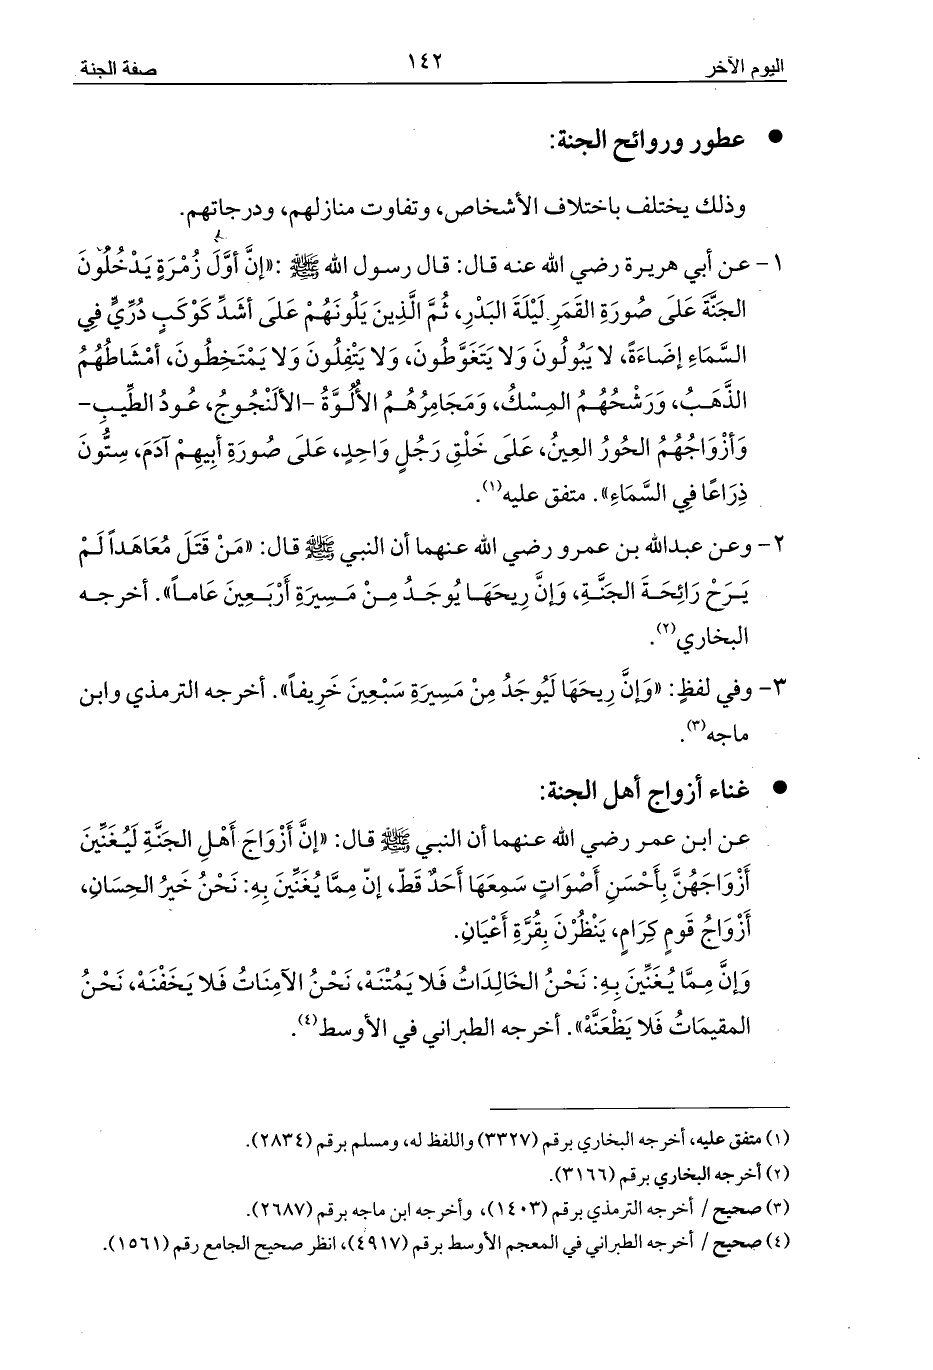 اليوم الآخر ١٤٢ صفة الجنة
● عطور وروائح الجنة:
وذلك يختلف باختلاف الأشخاص، وتفاوت منازلهم، ودرجاتهم.
١- عن أبي هريرة رضي الله عنه قال: قال رسول الله ﷺ: «إنَّ أوَّلَ زُمْرَةٍ يَدْخُلُونَ
الجَنَّةَ عَلَى صُورَةِ القَمَرِ لَيْلَةَ البَدْرِ، ثُمَّ الَّذِينَ يَلُونَهُمْ عَلَى أشَدِّ كَوْكَبٍ دُرِّيٍّ فِي
السَّمَاءِ إضَاءَةً، لا يَبُولُونَ وَلا يَتَغَوَّطُونَ، وَلا يَتْفِلُونَ وَلا يَمْتَخِطُونَ، أمْشَاطُهُمُ
الذَّهَبُ، وَرَشْحُهُمُ المِسْكُ، وَمَجَامِرُهُمُ الأُلُوَّةُ -الألَنْجُوجُ، عُودُ الطِّيبِ-
وَأزْوَاجُهُمُ الحُورُ العِينُ، عَلَى خَلْقِ رَجُلٍ وَاحِدٍ، عَلَى صُورَةِ أبِيهِمْ آدَمَ، سِتُّونَ
ذِرَاعًا فِي السَّمَاءِ». متفق عليه(١).
٢- وعن عبدالله بن عمرو رضي الله عنهما أن النبي ﷺ قال: «مَنْ قَتَلَ مُعَاهَداً لَمْ
يَرَحْ رَائِحَةَ الجَنَّةِ، وَإنَّ رِيحَهَا يُوجَدُ مِنْ مَسِيرَةِ أرْبَعِينَ عَاماً». أخرجه
البخاري(٢).
٣- وفي لفظٍ: «وَإنَّ رِيحَهَا لَيُوجَدُ مِنْ مَسِيرَةِ سَبْعِينَ خَرِيفاً». أخرجه الترمذي وابن
ماجه(٣).
● غناء أزواج أهل الجنة:
عن ابن عمر رضي الله عنهما أن النبي ﷺ قال: «إنَّ أزْوَاجَ أهْلِ الجَنَّةِ لَيُغَنِّينَ
أزْوَاجَهُنَّ بِأحْسَنِ أصْوَاتٍ سَمِعَهَا أحَدٌ قَطّ، إنّ مِمَّا يُغَنِّينَ بِهِ: نَحْنُ خَيرُ الحِسَانِ،
أزْوَاجُ قَومٍ كِرَامٍ، يَنْظُرْنَ بِقُرَّةِ أعْيَانٍ.
وَإنَّ مِمَّا يُغَنِّينَ بِهِ: نَحْنُ الخَالِدَاتُ فَلا يَمُتْنَهْ، نَحْنُ الآمِنَاتُ فَلا يَخَفْنَهْ، نَحْنُ
المقيمَاتُ فَلا يَظْعَنَّهْ». أخرجه الطبراني في الأوسط(٤).
(١) متفق عليه، أخرجه البخاري برقم (٣٣٢٧) واللفظ له، ومسلم برقم (٢٨٣٤).
(٢) أخرجه البخاري برقم (٣١٦٦).
(٣) صحيح / أخرجه الترمذي برقم (١٤٠٣)، وأخرجه ابن ماجه برقم (٢٦٨٧).
(٤) صحيح / أخرجه الطبراني في المعجم الأوسط برقم (٤٩١٧)، انظر صحيح الجامع رقم (١٥٦١).